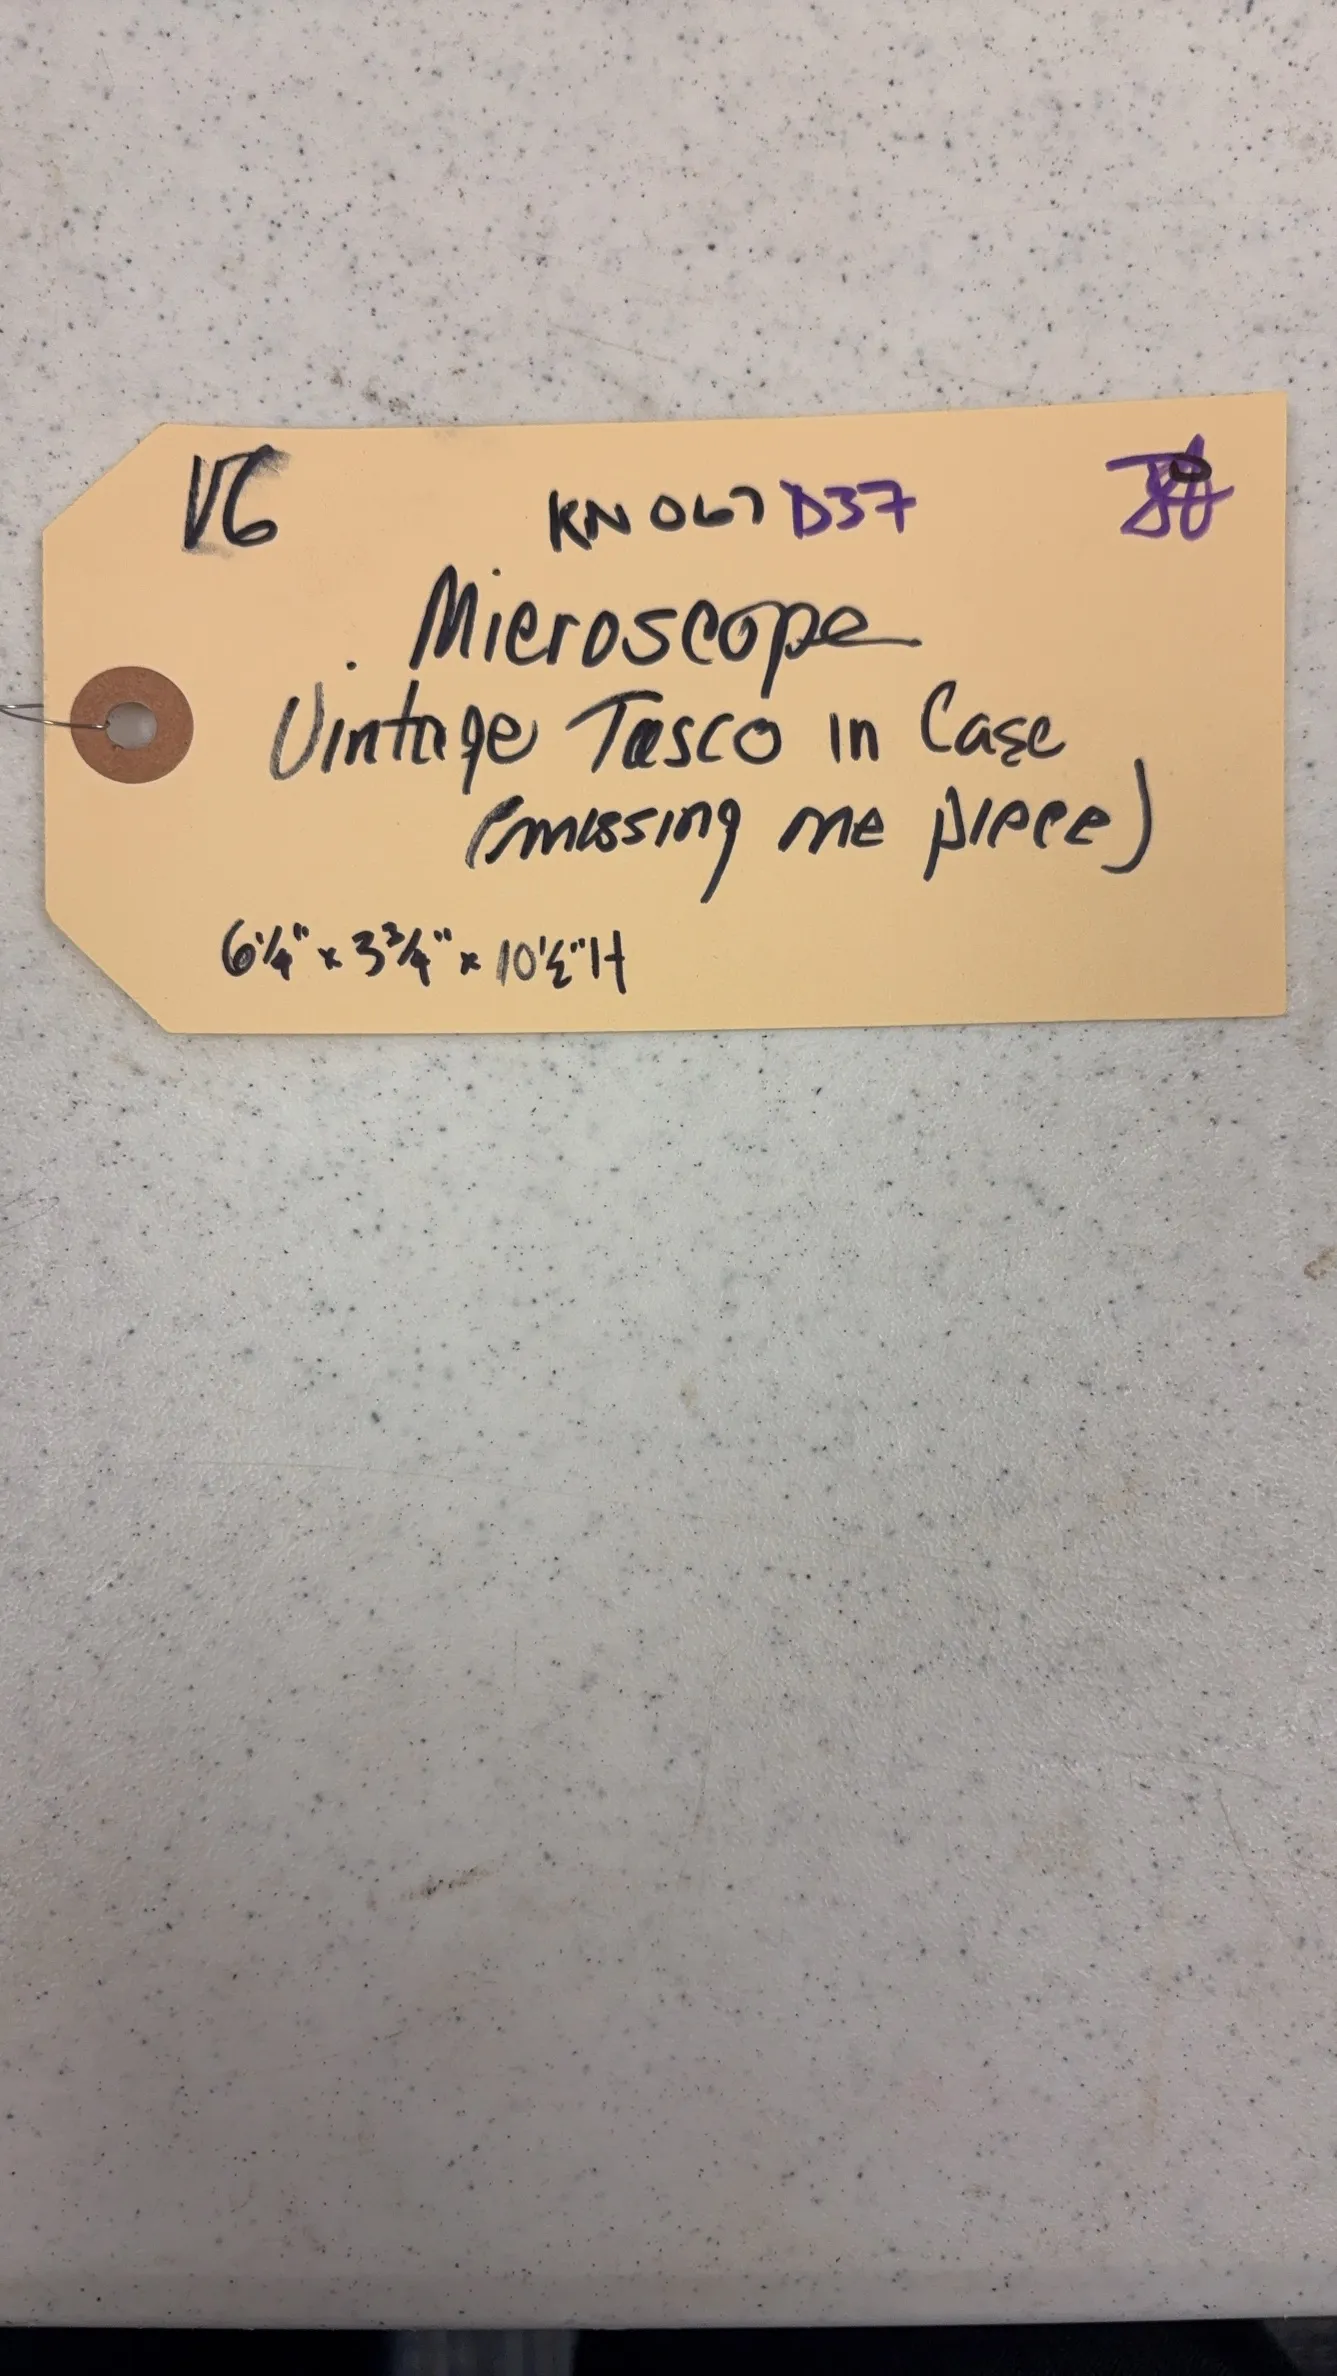 VG KN067 D37
Microscope
Vintage Tasco in Case
(missing one piece)
6 1/4" x 3 3/4" x 10 1/2" H